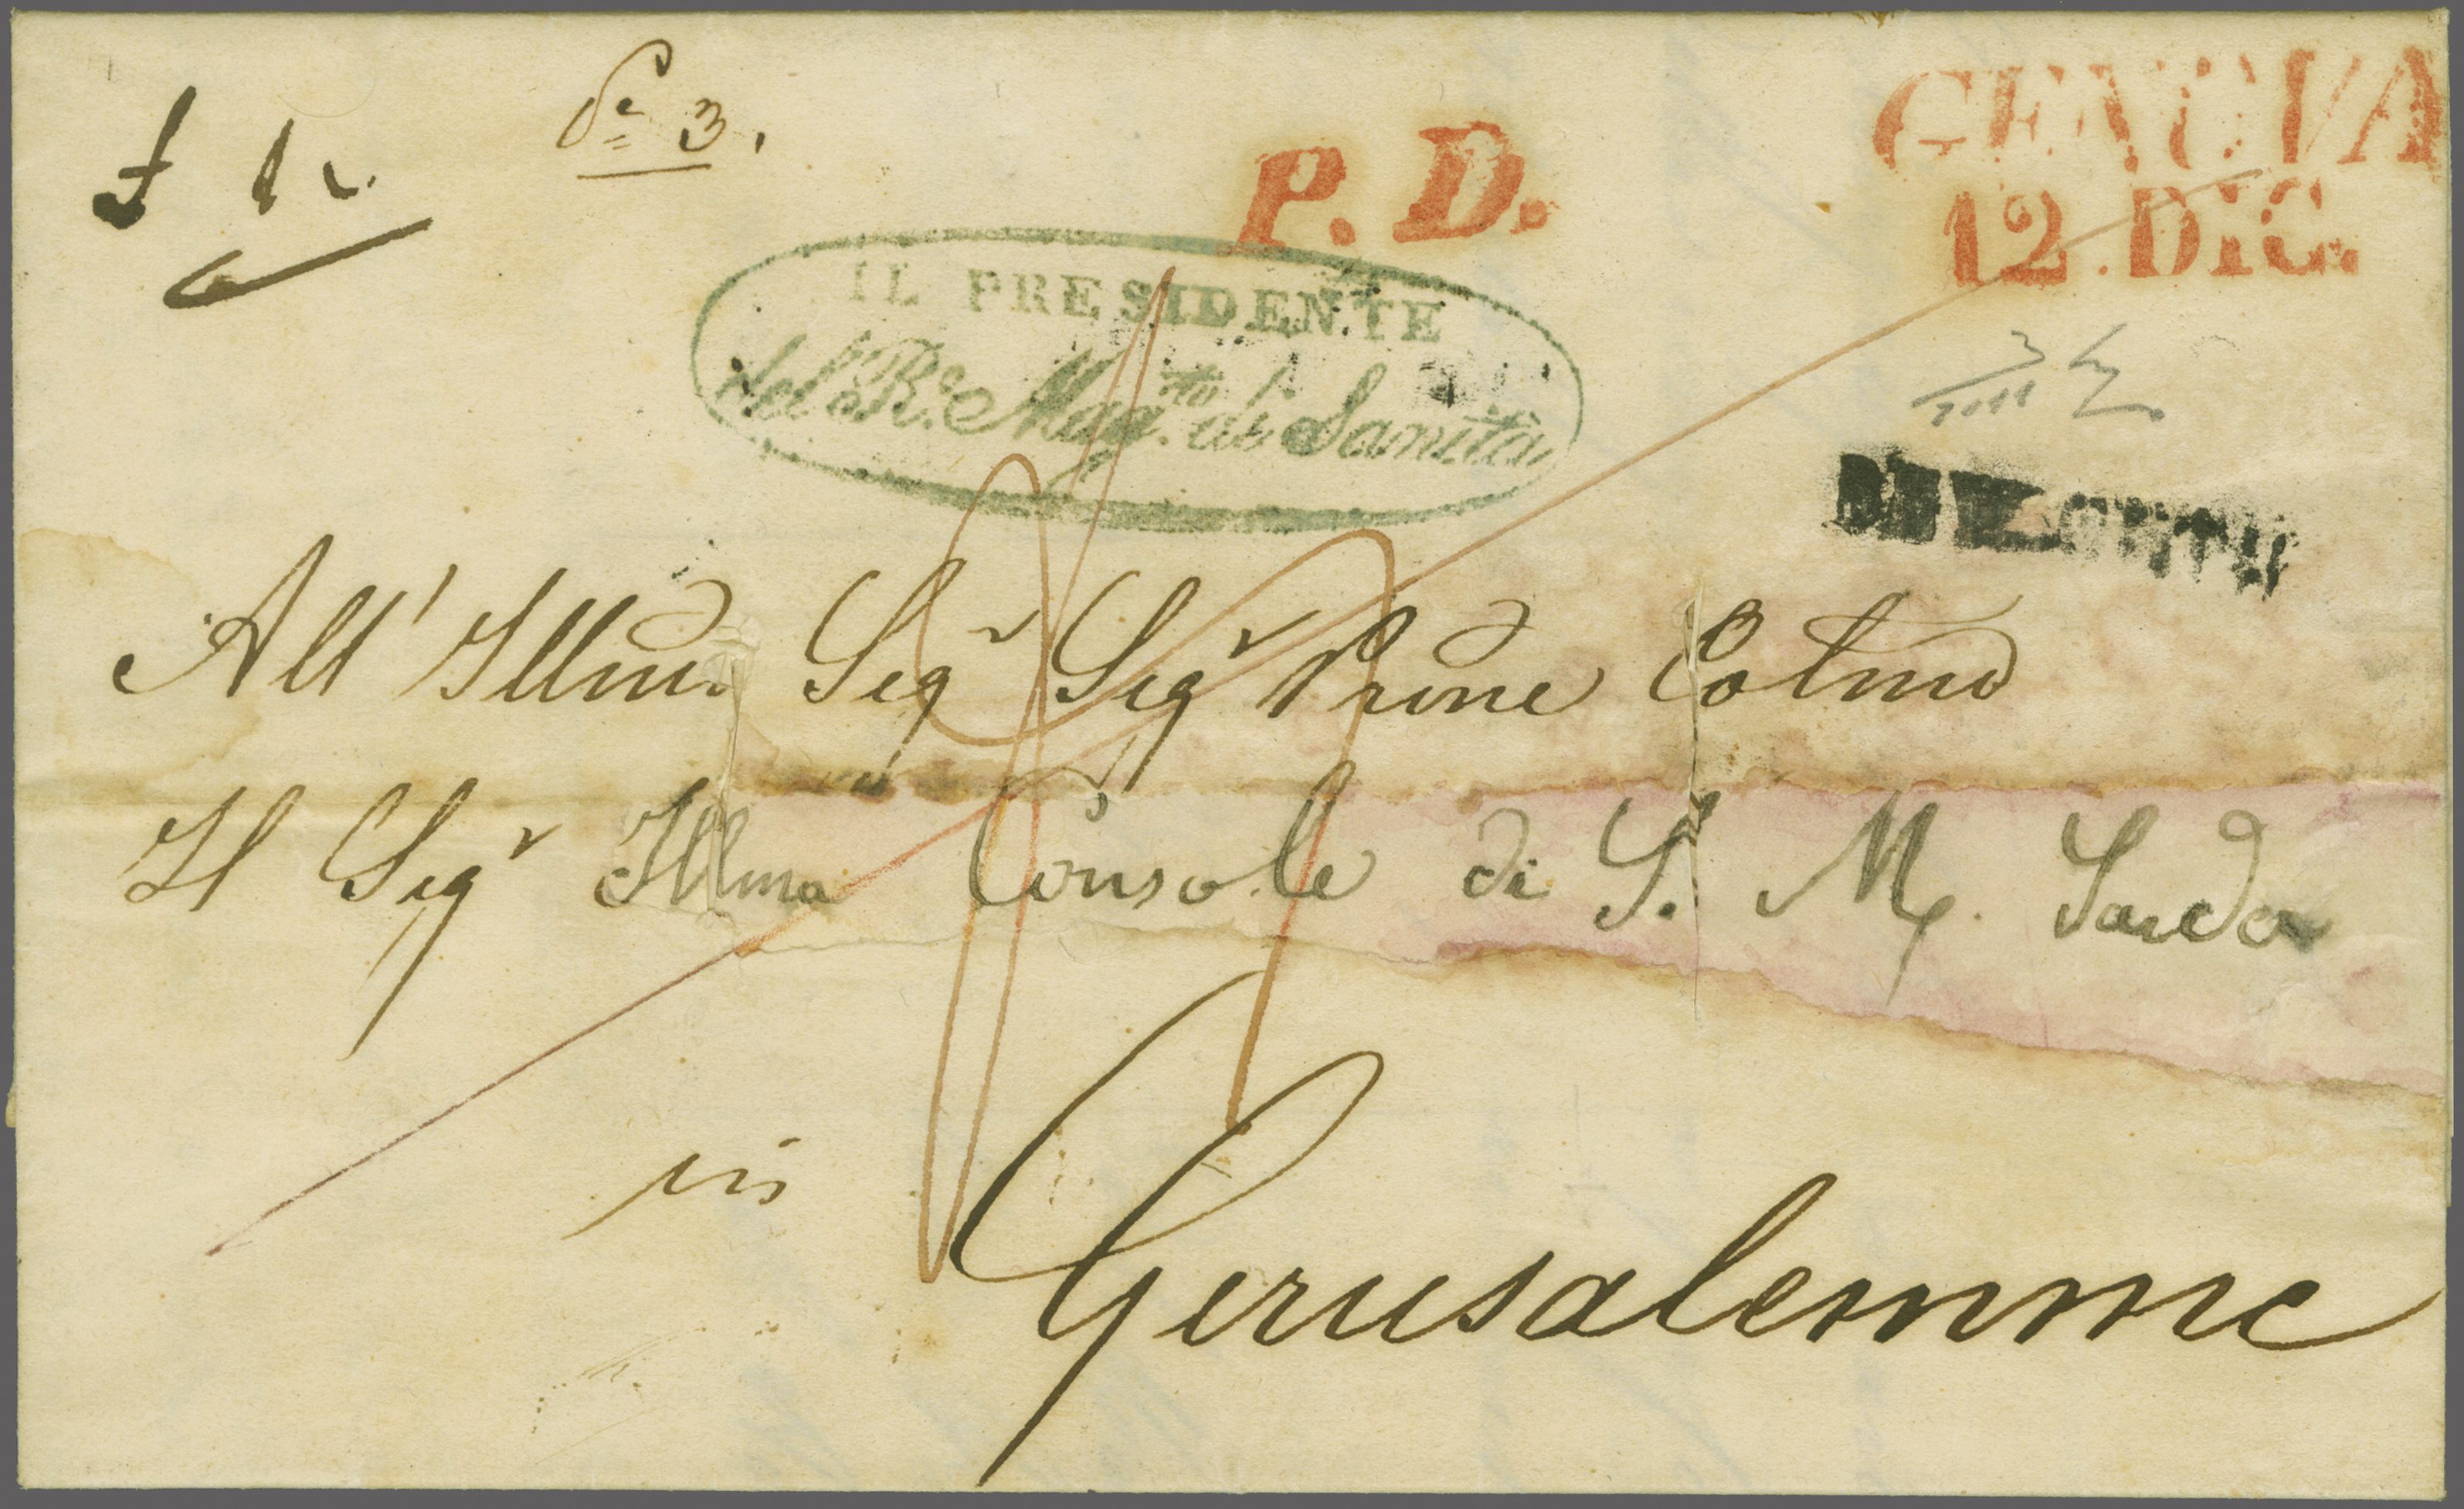 N° 3.
P. D.
GENOVA
12. DIC.
IL PRESIDENTE
del R.° Mag.to di Sanità
All' Illmo Sigr Sigr Prone Colmo
Il Sigr Illmo Console di S. M. Sarda
in
Gerusalemme